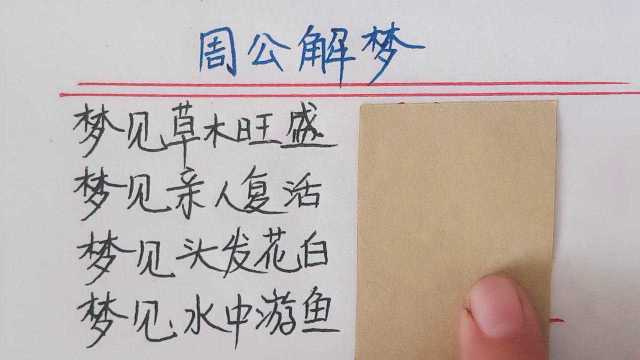 周公解梦
梦见草木旺盛
梦见亲人复活
梦见头发花白
梦见水中游鱼